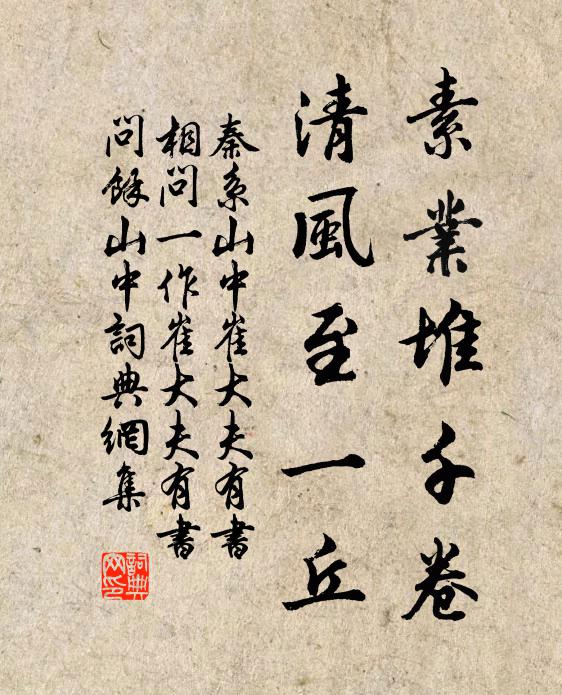 素業堆千卷
清風至一丘
秦系山中崔大夫有書
相問一作崔大夫有書
問餘山中詞典網集
詞典
网印